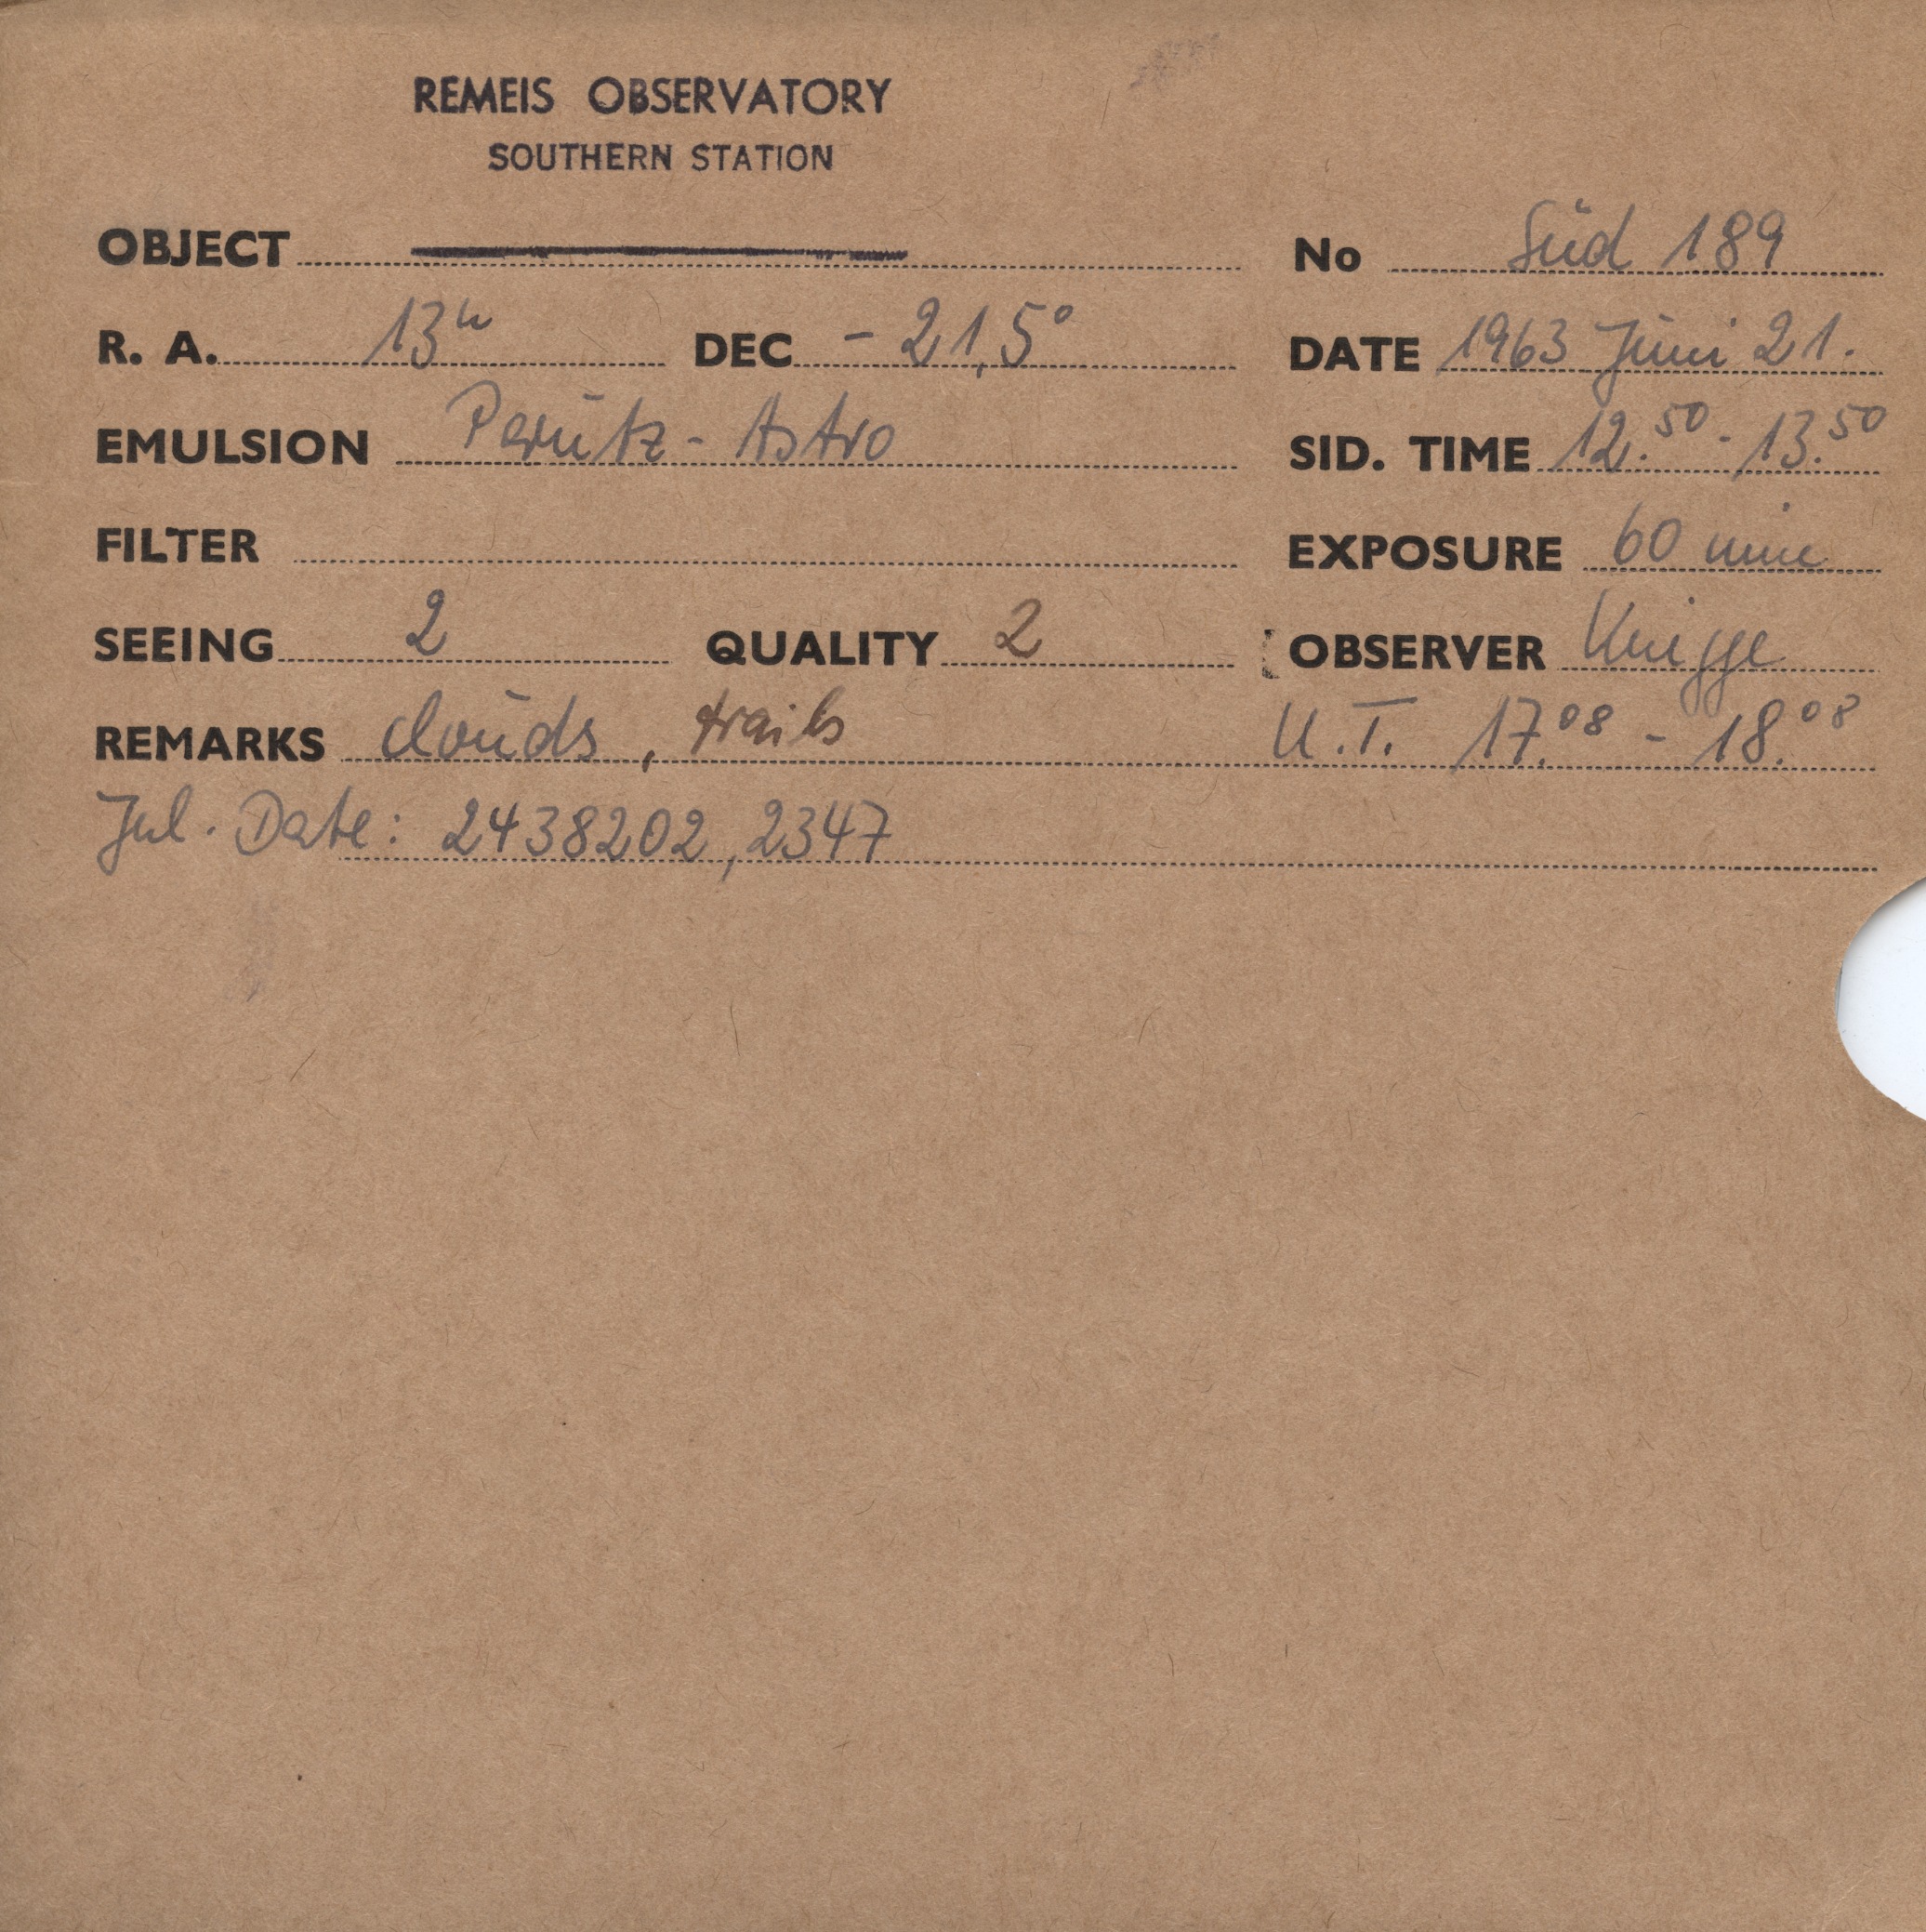 REMEIS OBSERVATORY
SOUTHERN STATION
OBJECT No Süd 189
R. A. 13h DEC - 21,5° DATE 1963 Juni 21.
EMULSION Perutz - Astro SID. TIME 12.50 - 13.50
FILTER EXPOSURE 60 min
SEEING 2 QUALITY 2 OBSERVER Knigge
REMARKS clouds, trails U.T. 17.08 - 18.08
Jul. Date: 2438202,2347